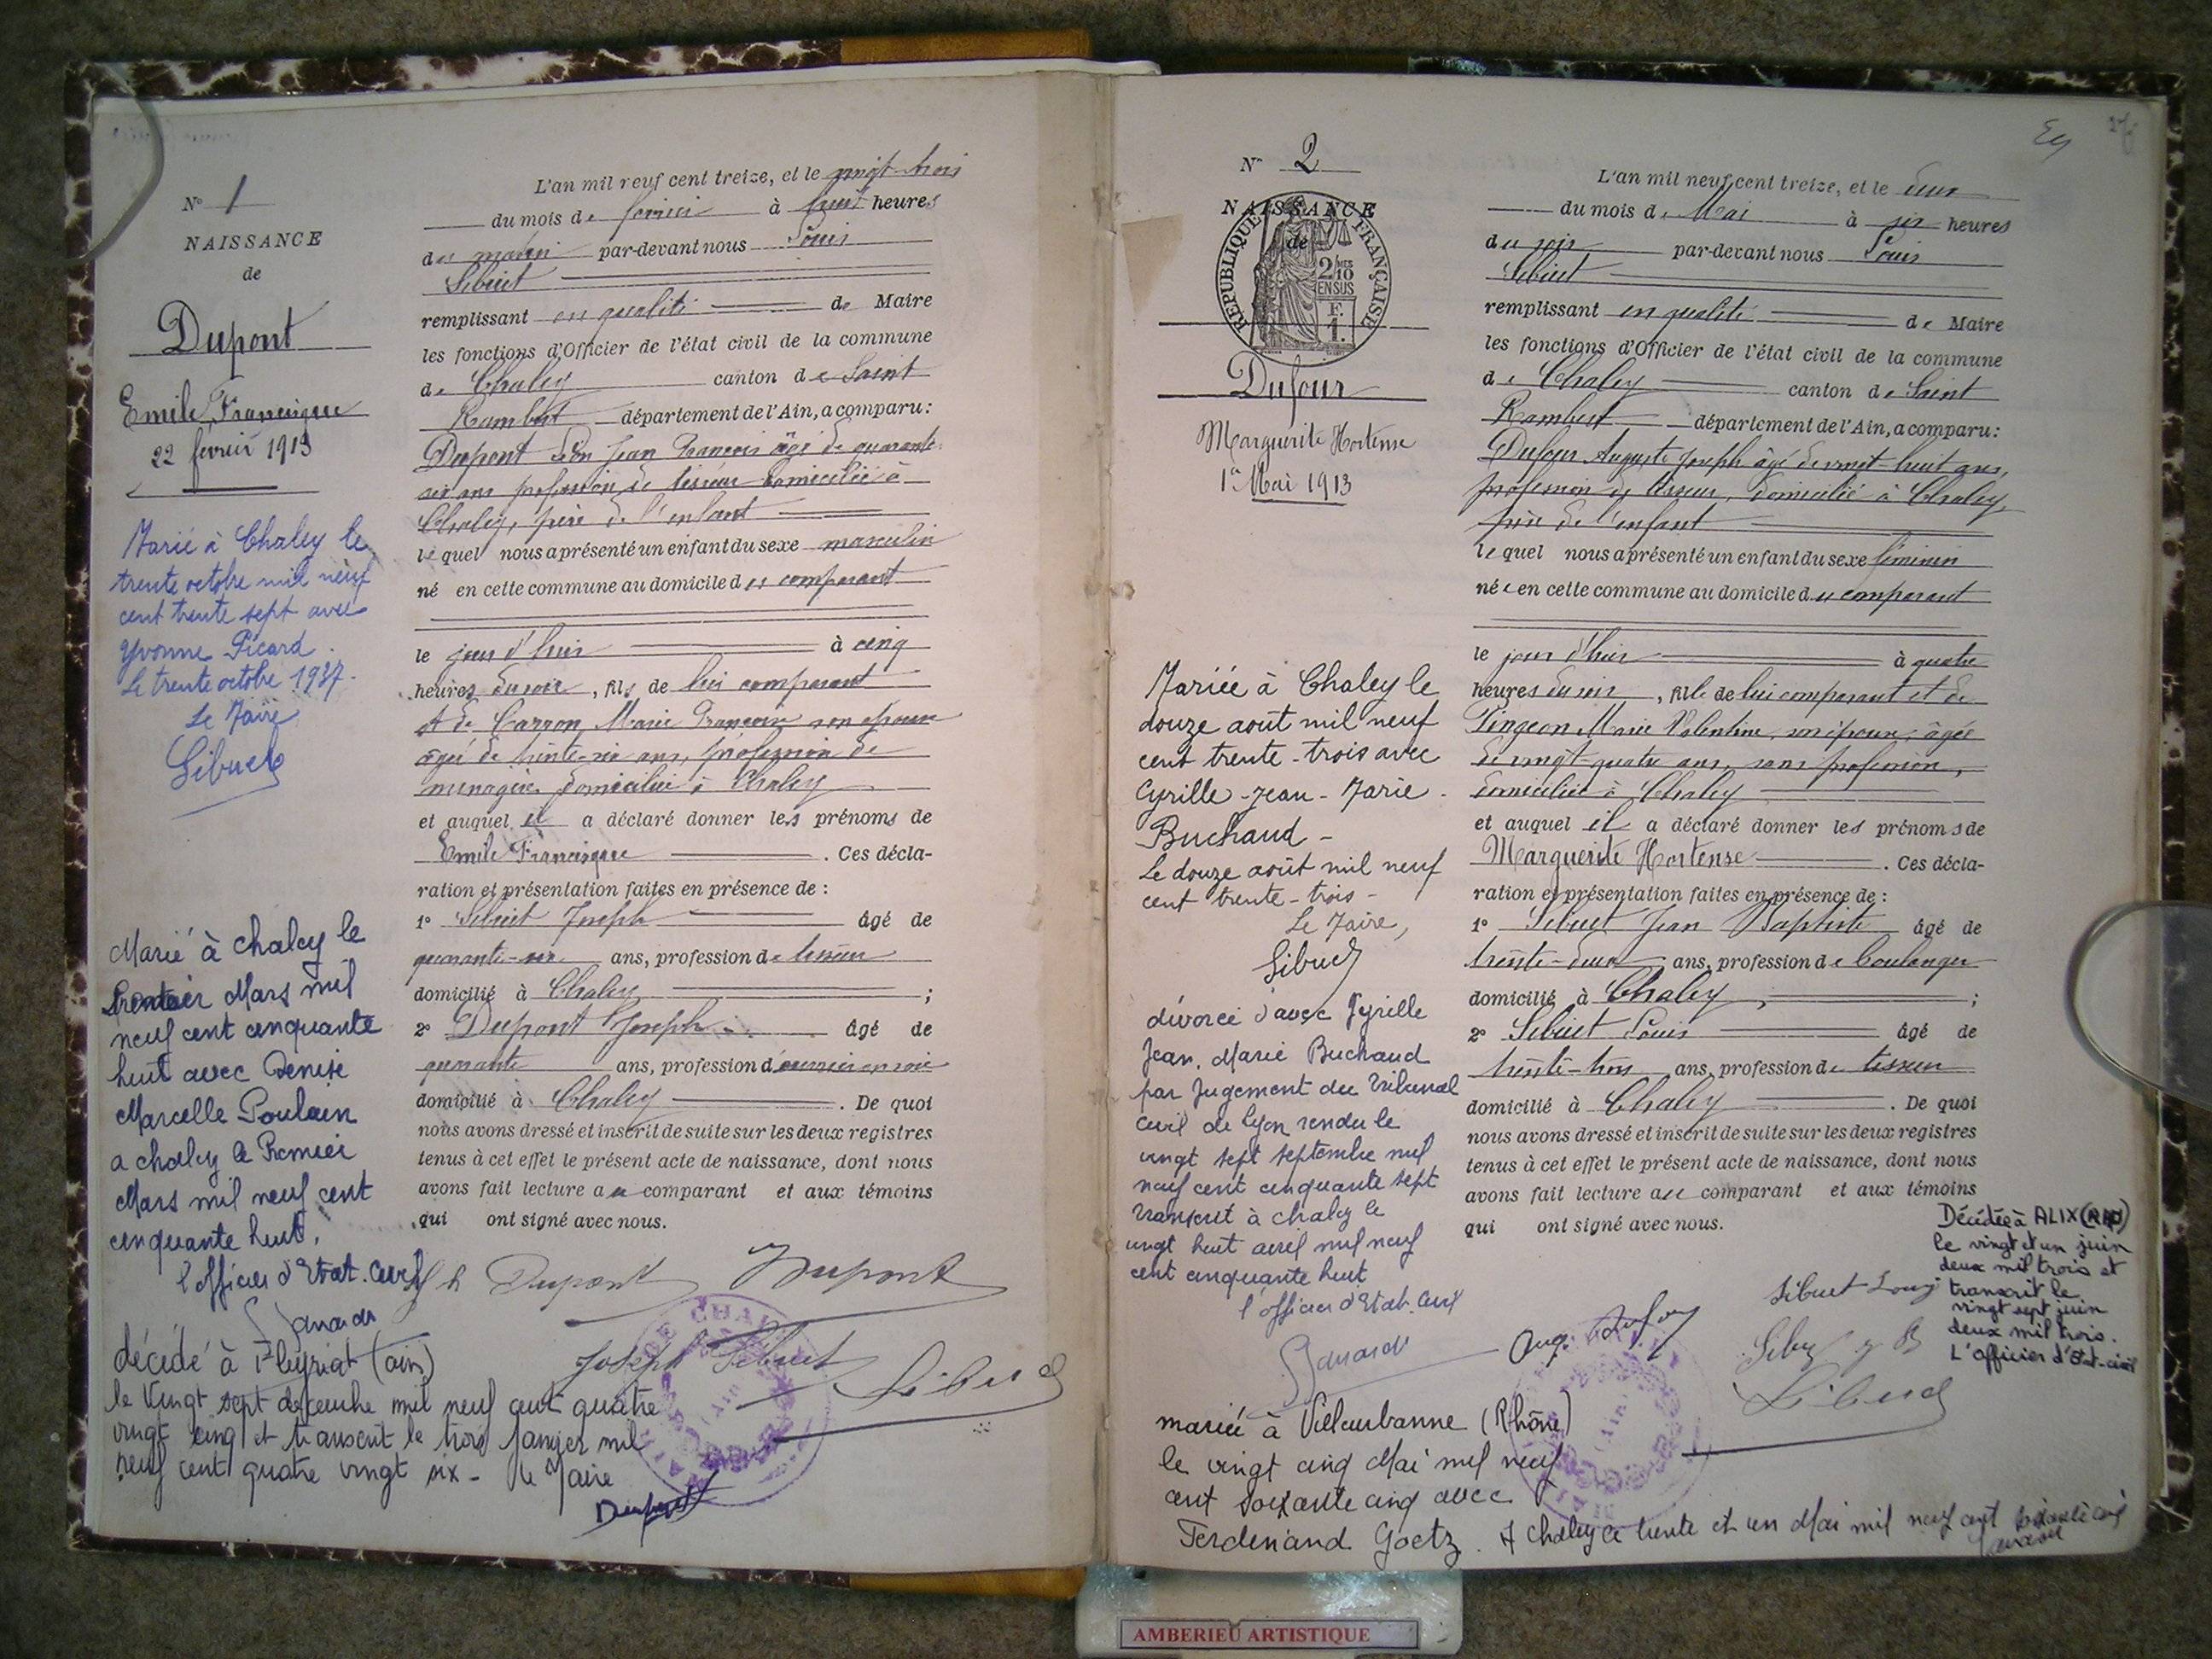 N° 1
NAISSANCE
de
Dupont
Emile Francisque
22 février 1913
Marié à Chaley le
trente octobre mil neuf
cent trente sept avec
Yvonne Picard.
Le trente octobre 1937.
Le Maire
Sibuet
Marié à Chaley le
Premier Mars mil
neuf cent cinquante
huit avec Denise
Marcelle Poulain
a chaley le Premier
Mars mil neuf cent
cinquante huit.
l'officier d'Etat. Civil
décédé à Fleyriat (ain)
le Vingt sept decembre mil neuf cent quatre
vingt cinq et transcrit le trois Janvier mil
neuf cent quatre vingt six - le Maire
Dupont
L'an mil neuf cent treize, et le vingt-trois
du mois de février à huit heures
du matin par-devant nous Louis
Sibuet
remplissant en qualité de Maire
les fonctions d'Officier de l'état civil de la commune
de Chaley canton de Saint
Rambert département de l'Ain, a comparu:
Dupont Jean François âgé de quarante
six ans profession de tisseur domicilié à
Chaley, père de l'enfant
lequel nous a présenté un enfant du sexe masculin
né en cette commune au domicile du comparant
le jour d'hier à cinq
heures du soir, fils de lui comparant
et de Carron Marie Françoise son épouse
âgée de trente-six ans, profession de
ménagère domiciliée à Chaley
et auquel il a déclaré donner les prénoms de
Emile Francisque. Ces décla-
ration et présentation faites en présence de :
1° Sibuet Joseph âgé de
quarante-six ans, profession de tisseur
domicilié à Chaley ;
2° Dupont Joseph âgé de
quarante ans, profession d'ouvrier en soie
domicilié à Chaley. De quoi
nous avons dressé et inscrit de suite sur les deux registres
tenus à cet effet le présent acte de naissance, dont nous
avons fait lecture au comparant et aux témoins
qui ont signé avec nous.
Dupont Dupont
Joseph Sibuet Sibuet
N° 2
NAISSANCE
de
REPUBLIQUE FRANÇAISE
2/10 EN SUS
F.
1.
Dufour
Marguerite Hortense
1er Mai 1913
Mariée à Chaley le
douze août mil neuf
cent trente-trois avec
Cyrille-Jean-Marie-
Buchaud-
Le douze août mil neuf
cent trente-trois-
Le Maire,
Sibuet
divorcé d'avec Cyrille
Jean. Marie Buchaud
par Jugement du Tribunal
civil de Lyon rendu le
vingt sept septembre mil
neuf cent cinquante sept
transcrit à chaley le
vingt huit avril mil neuf
cent cinquante huit
l'officier d'Etat. Civil
mariée à Villeurbanne (Rhône)
le vingt cinq Mai mil neuf
cent soixante cinq avec
Ferdinand Goetz. A Chaley le trente et un Mai mil neuf cent soixante cinq
L'an mil neuf cent treize, et le deux
du mois de Mai à six heures
du soir par-devant nous Louis
Sibuet
remplissant en qualité de Maire
les fonctions d'Officier de l'état civil de la commune
de Chaley canton de Saint
Rambert département de l'Ain, a comparu:
Dufour Auguste Joseph âgé de vingt-huit ans,
profession de tisseur, domicilié à Chaley,
père de l'enfant
lequel nous a présenté un enfant du sexe féminin
née en cette commune au domicile du comparant
le jour d'hier à quatre
heures du soir, fille de lui comparant et de
Pingeon Marie Valentine, son épouse, âgée
de vingt-quatre ans, sans profession,
domiciliée à Chaley
et auquel il a déclaré donner les prénoms de
Marguerite Hortense. Ces décla-
ration et présentation faites en présence de :
1° Sibuet Jean Baptiste âgé de
trente-deux ans, profession de boulanger
domicilié à Chaley ;
2° Sibuet Louis âgé de
trente-trois ans, profession de tisseur
domicilié à Chaley. De quoi
nous avons dressé et inscrit de suite sur les deux registres
tenus à cet effet le présent acte de naissance, dont nous
avons fait lecture au comparant et aux témoins
qui ont signé avec nous.
Aug. Dufour
Sibuet Louis
Sibuet
Décédée à ALIX
le vingt et un juin
deux mil trois et
transcrit le
vingt sept juin
deux mil trois.
L'officier d'Etat-civil
AMBERIEU ARTISTIQUE